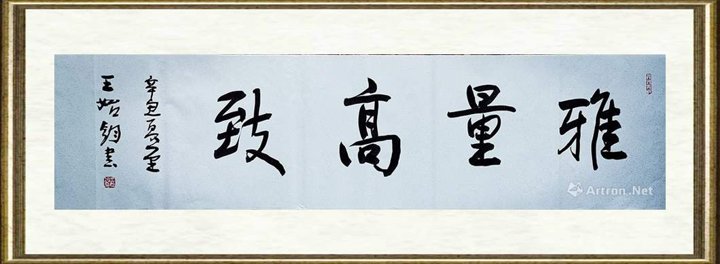 雅量高致
辛丑夏至
王 书
Artron.Net